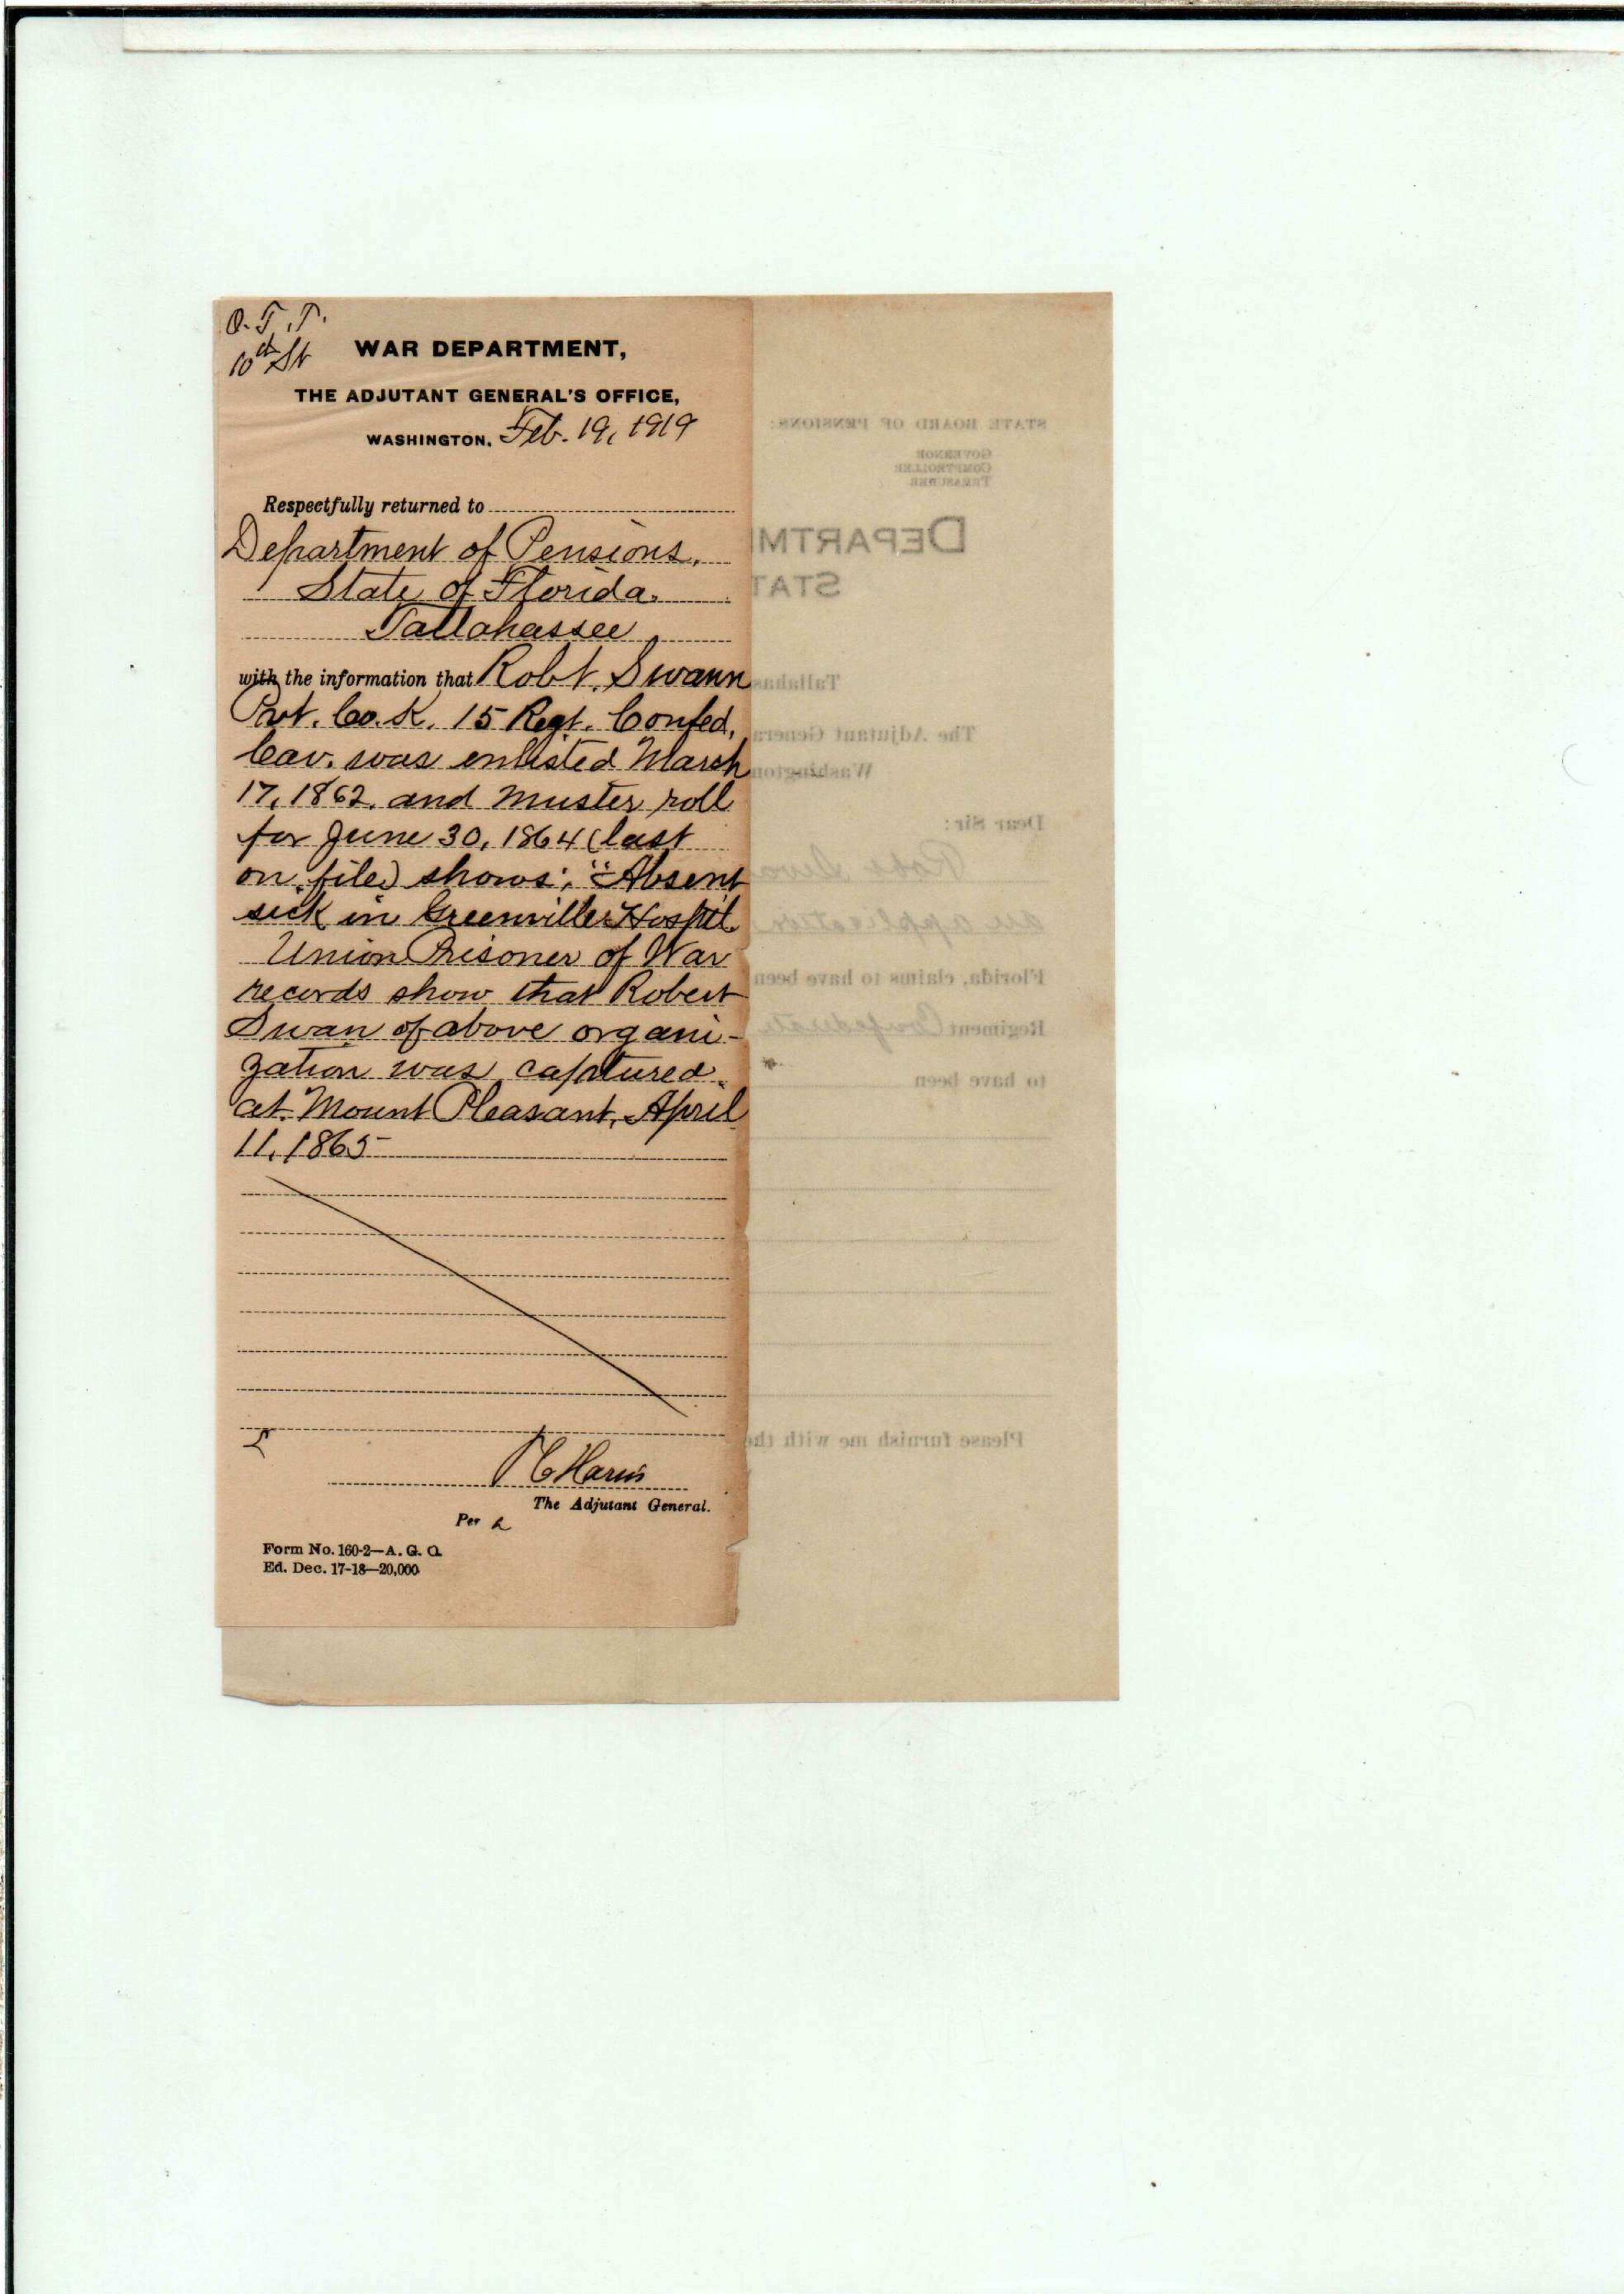 O.T.T.
10th St
WAR DEPARTMENT,
THE ADJUTANT GENERAL'S OFFICE,
WASHINGTON, Feb. 19, 1919
Respectfully returned to
Department of Pensions,
State of Florida.
Tallahassee
with the information that Robt. Swann
Pvt. Co. K. 15 Regt. Confed,
Cav. was enlisted March
17, 1862, and muster roll
for June 30, 1864 (last
on file) shows: "Absent
sick in Greenville Hospt.
Union Prisoner of War
records show that Robert
Swan of above organi-
zation was captured
at Mount Pleasant, April
11, 1865
P C Harris
The Adjutant General.
Per
Form No. 160-2—A. G. O.
Ed. Dec. 17-18—20,000
STATE BOARD OF PENSIONS:
GOVERNOR
COMPTROLLER
TREASURER
DEPARTM
STAT
Tallahas
The Adjutant Genera
Washington
Dear Sir:
Robt Swa
an application
Florida, claims to have been
Regiment Confederate
to have been
Please furnish me with the